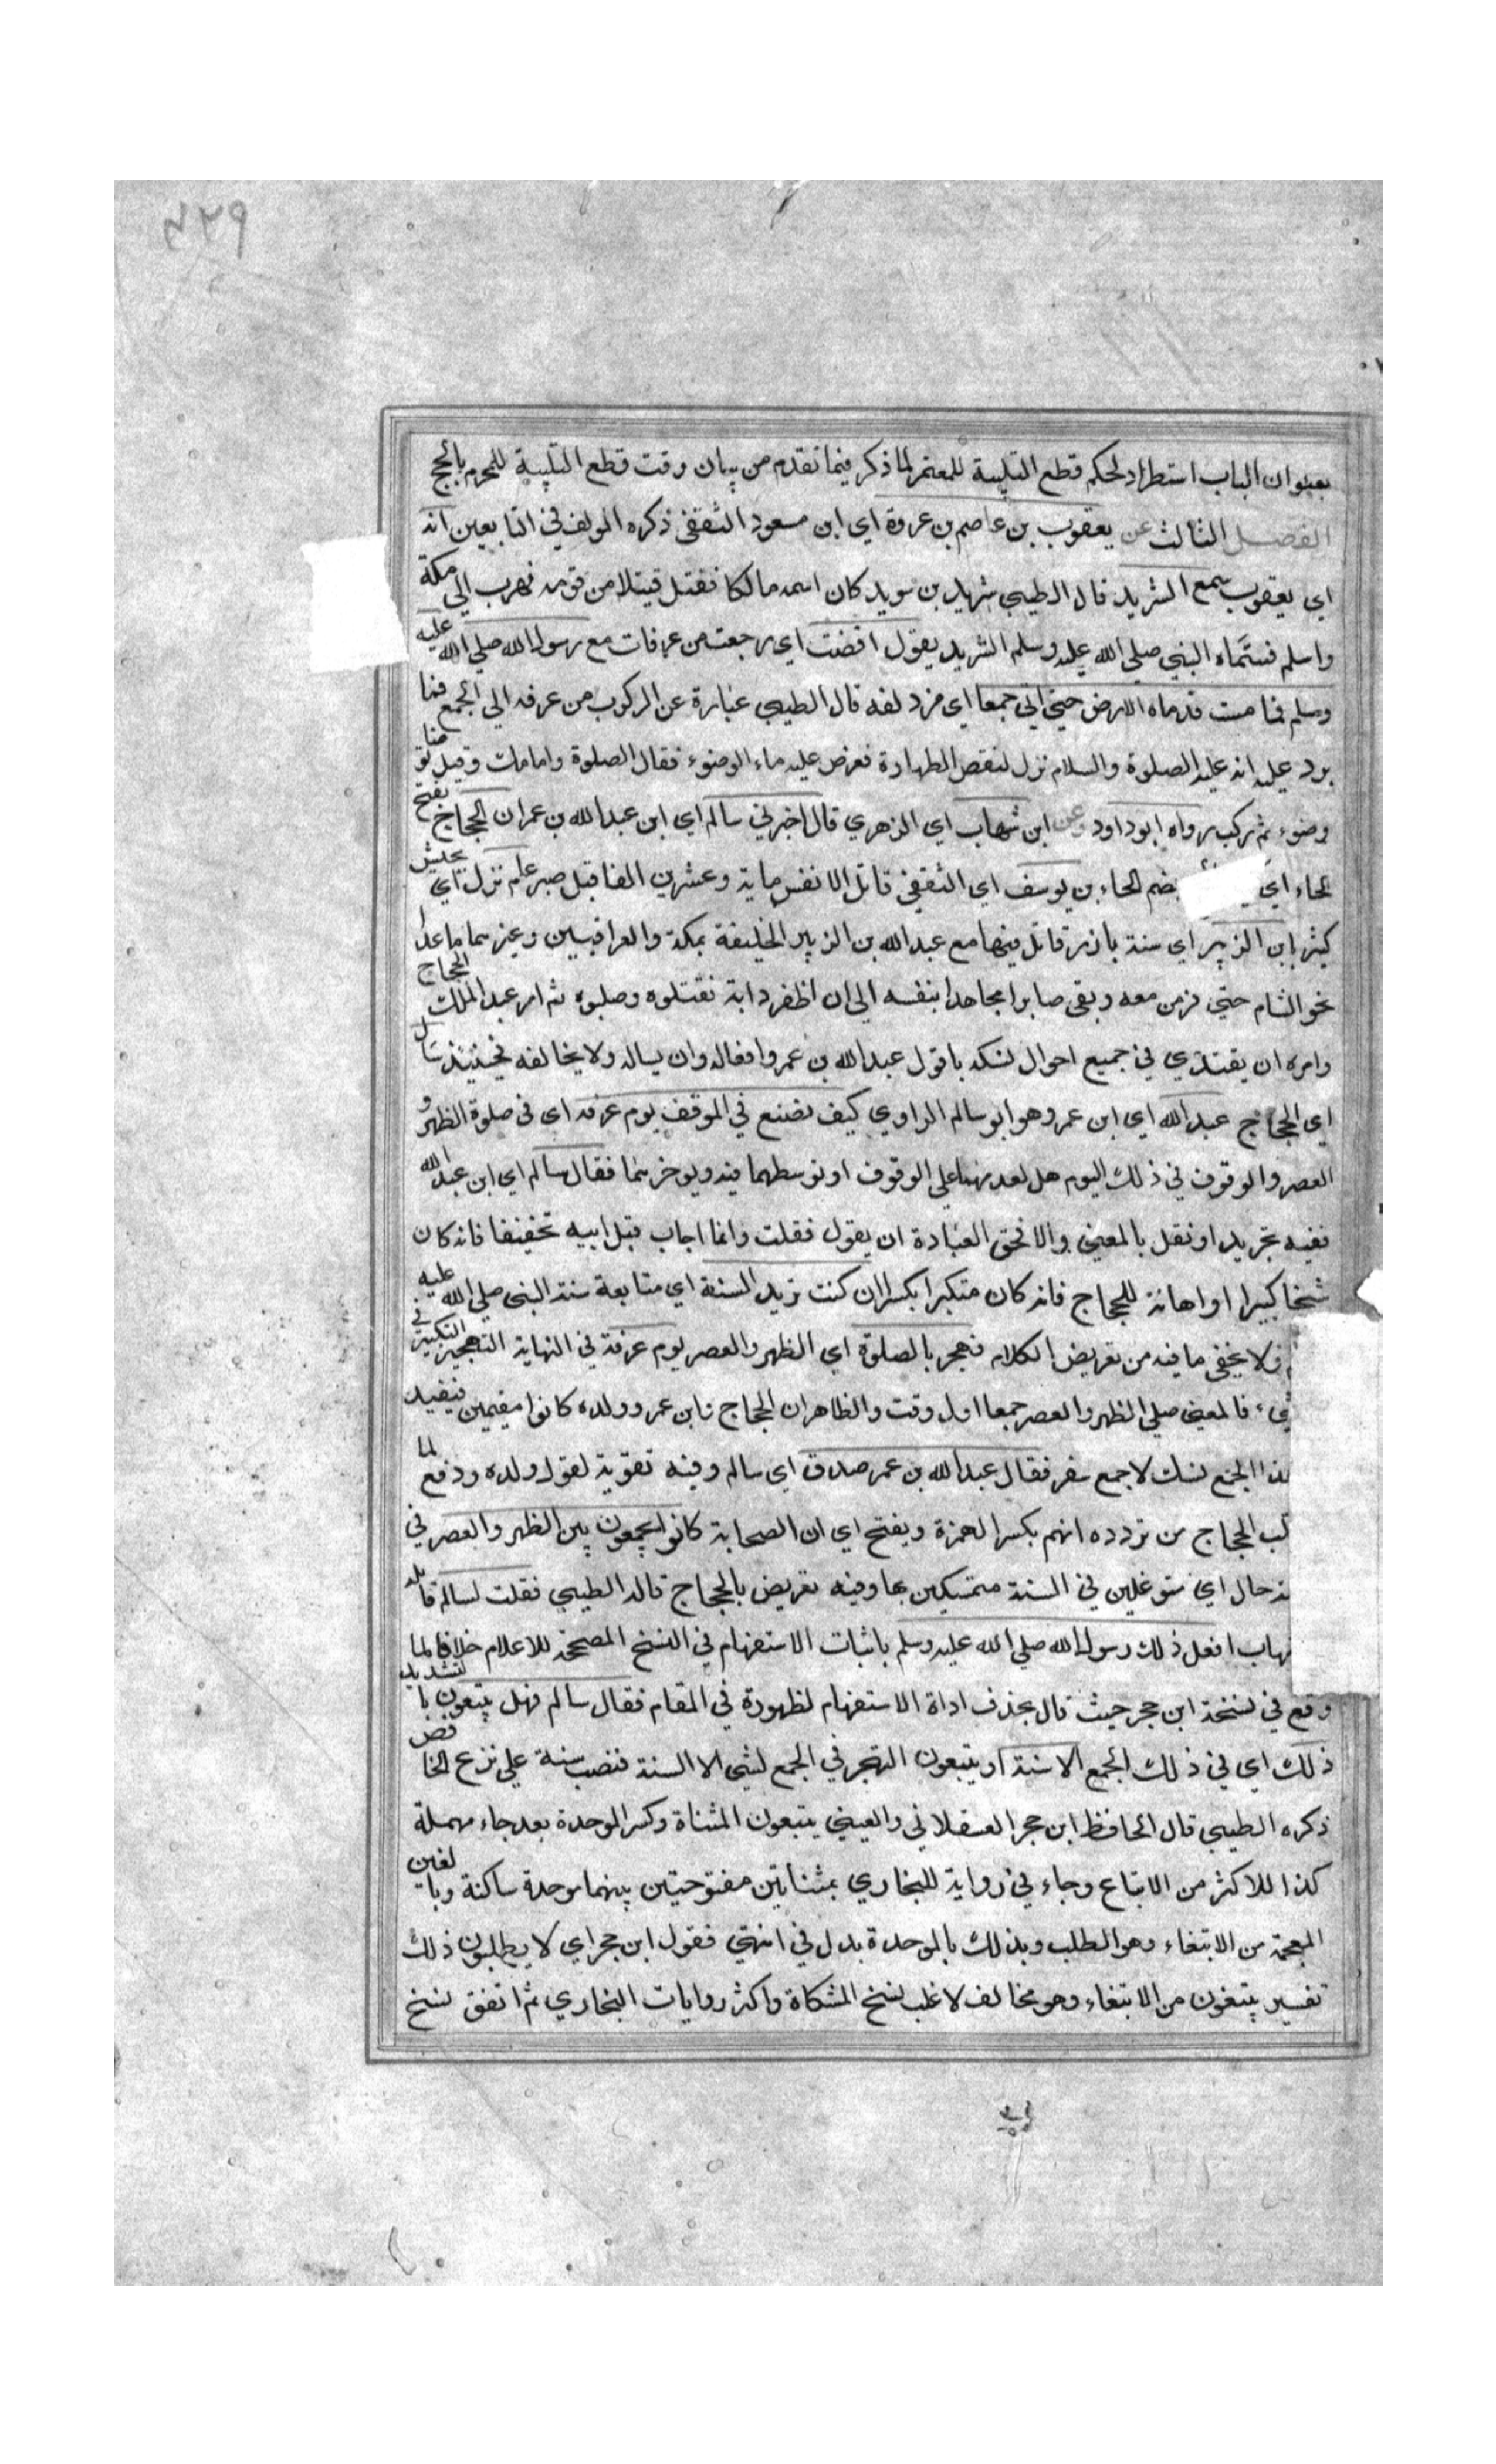 ٤٢٩
بعنوان الباب استطراد لحكم قطع التلبية للمعتمر لما ذكر فيما تقدم من بيان وقت قطع التلبية للمحرم بالحج
الفصل الثالث عن يعقوب بن عاصم بن عروة اي ابن مسعود الثقفي ذكره المولف في التابعين انه
اي يعقوب سمع الشريد قال الطيبي شريد بن سويد كان اسمه مالكا فقتل قتيلا من قومه فهرب الى مكة
واسلم فسماه النبي صلى الله عليه وسلم الشريد يقول افضت اي رجعت من عرفات مع رسول الله صلى الله عليه
وسلم فما مست قدماه الارض حتى اتى جمعا اي مزدلفه قال الطيبي عبارة عن الركوب من عرفه الى الجمع فما
يرد عليه انه عليه الصلوة والسلام نزل لنقض الطهارة فعرض عليه ماء الوضوء فقال الصلوة وامامك وقيل توضا
وضوء ثم ركب رواه ابو داود وعن ابن شهاب اي الزهري قال اخبرني سالم اي ابن عبد الله بن عمر ان الحجاج بفتح
الحاء اي بضم الحاء بن يوسف اي الثقفي قاتل الانفس ماية وعشرين الفا قبل صبر عام نزل اي بجيش
كثير بابن الزبير اي سنة بارز قاتل فيها مع عبد الله بن الزبير الخليفة بمكة والعراقيين وغيرهما ما عدا
نحو الشام حتى فر من معه وبقي صابرا مجاهدا بنفسه الى ان اظفر دابة فقتلوه وصلبوه ثم امر عبد الملك الحجاج
وامره ان يقتدي في جميع احوال نسكه باقول عبد الله بن عمر وافعاله وان يساله ولا يخالفه فحينئذ سال
اي الحجاج عبد الله اي ابن عمر وهو ابو سالم الراوي كيف نصنع في الموقف يوم عرفه اي في صلوة الظهر و
العصر والوقوف في ذلك اليوم هل نقدمهما على الوقوف او نوسطهما فيه ويوخرهما فقال سالم اي ابن عبد الله
ففيه تجريد او نقل بالمعنى والا فحق العبادة ان يقول فقلت وانما اجاب قبل ابيه تخفيفا فانه كان
شيخا كبيرا او اهانة للحجاج فانه كان متكبرا بكسر ان كنت تريد السنة اي متابعة سنة النبي صلى الله عليه
فلا يخفى ما فيه من تعريض الكلام فهجر بالصلوة اي الظهر والعصر يوم عرفة في النهاية التهجير التبكير في
شيء فالمعنى صلى الظهر والعصر جمعا اول وقت والظاهر ان الحجاج وابن عمر وولده كانوا مقيمين فيفيد
هذا الجمع نسك لا جمع سفر فقال عبد الله بن عمر صدق اي سالم وفيه تقوية لقول ولده ودفع لما
قلب الحجاج من تردده انهم بكسر الهمزة ويفتح اي ان الصحابة كانوا يجمعون بين الظهر والعصر في
حال اي متوغلين في السنة متمسكين بها وفيه تعريض بالحجاج قاله الطيبي فقلت لسالم قايله
شهاب افعل ذلك رسول الله صلى الله عليه وسلم باثبات الاستفهام في النسخ المصححة للاعلام خلافا لما
وقع في نسخة ابن حجر حيث قال بحذف اداة الاستفهام لظهوره في المقام فقال سالم فهل يتبعون بالتشديد
ذلك اي في ذلك الجمع الا سنة او يتبعون التهجر في الجمع لشي الا السنة فنصب سنة على نزع الخافض
ذكره الطيبي قال الحافظ ابن حجر العسقلاني والعيني يتبعون المثناة وكسر الموحدة بعدها مهملة
كذا للاكثر من الاتباع وجاء في رواية للبخاري بمثناتين مفتوحتين بينهما موحدة ساكنة وبالغين
المعجمة من الابتغاء وهو الطلب وبذلك بالموحدة بدل في انتهى فقول ابن حجر اي لا يطلبون ذلك
تفسير يبتغون من الابتغاء وهو مخالف لاغلب نسخ المشكاة واكثر روايات البخاري ثم اتفق نسخ